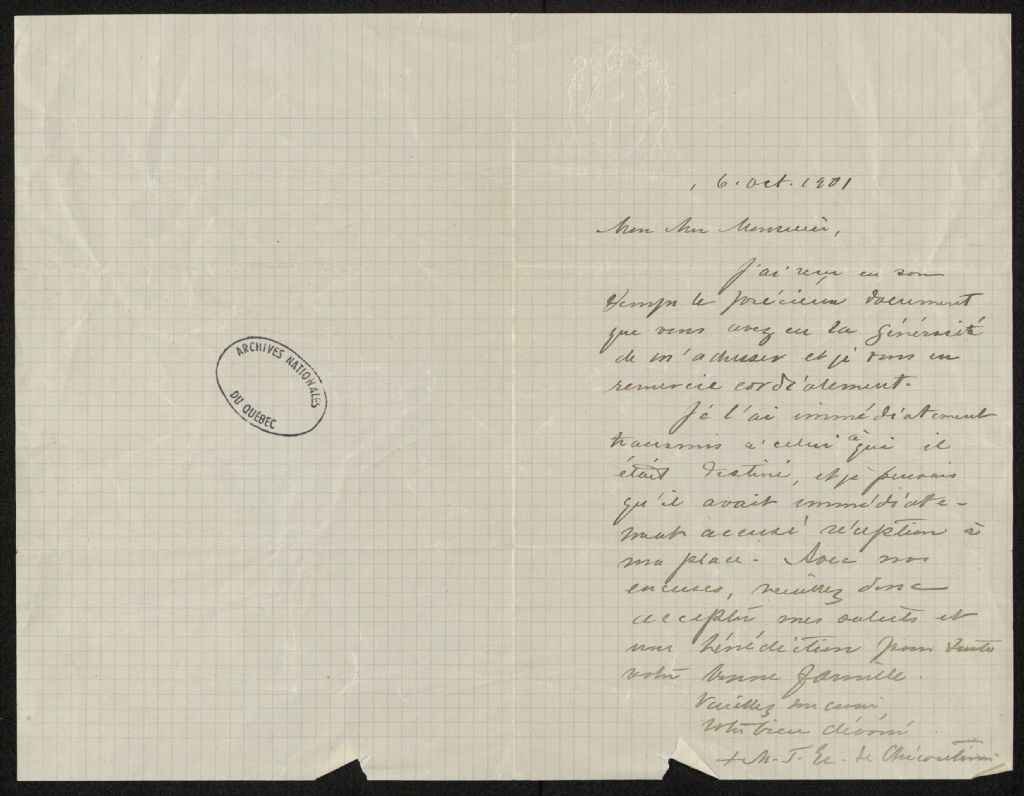 ARCHIVES NATIONALES
DU QUÉBEC
, 6. oct. 1901
Mon cher Monsieur,
J'ai reçu en son
temps le précieux document
que vous avez eu la générosité
de m'adresser et je vous en
remercie cordialement.
Je l'ai immédiatement
transmis à celui à qui il
était destiné, et je pensais
qu'il avait immédiate-
ment accusé réception à
ma place. Avec mes
excuses, veuillez donc
accepter mes saluts et
une bénédiction pour toute
votre bonne famille.
Veuillez me croire
Votre bien dévoué
+ M. T. Ev. de Chicoutimi